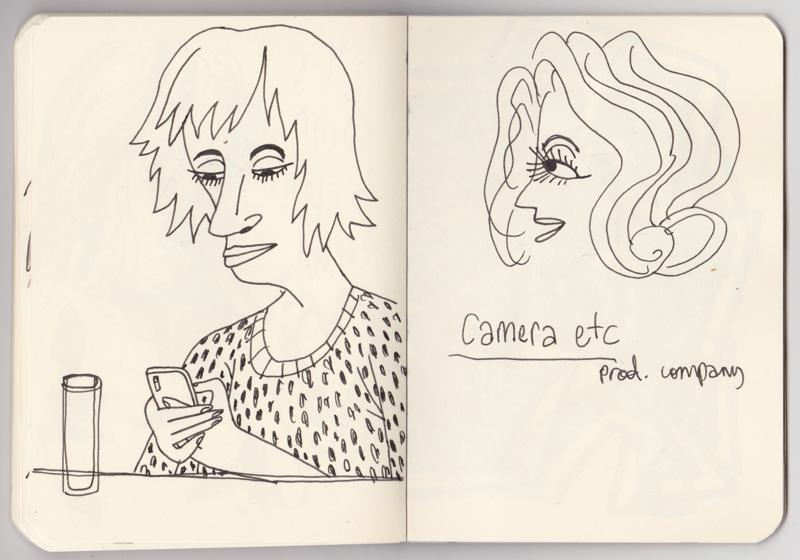 Camera etc
prod. company